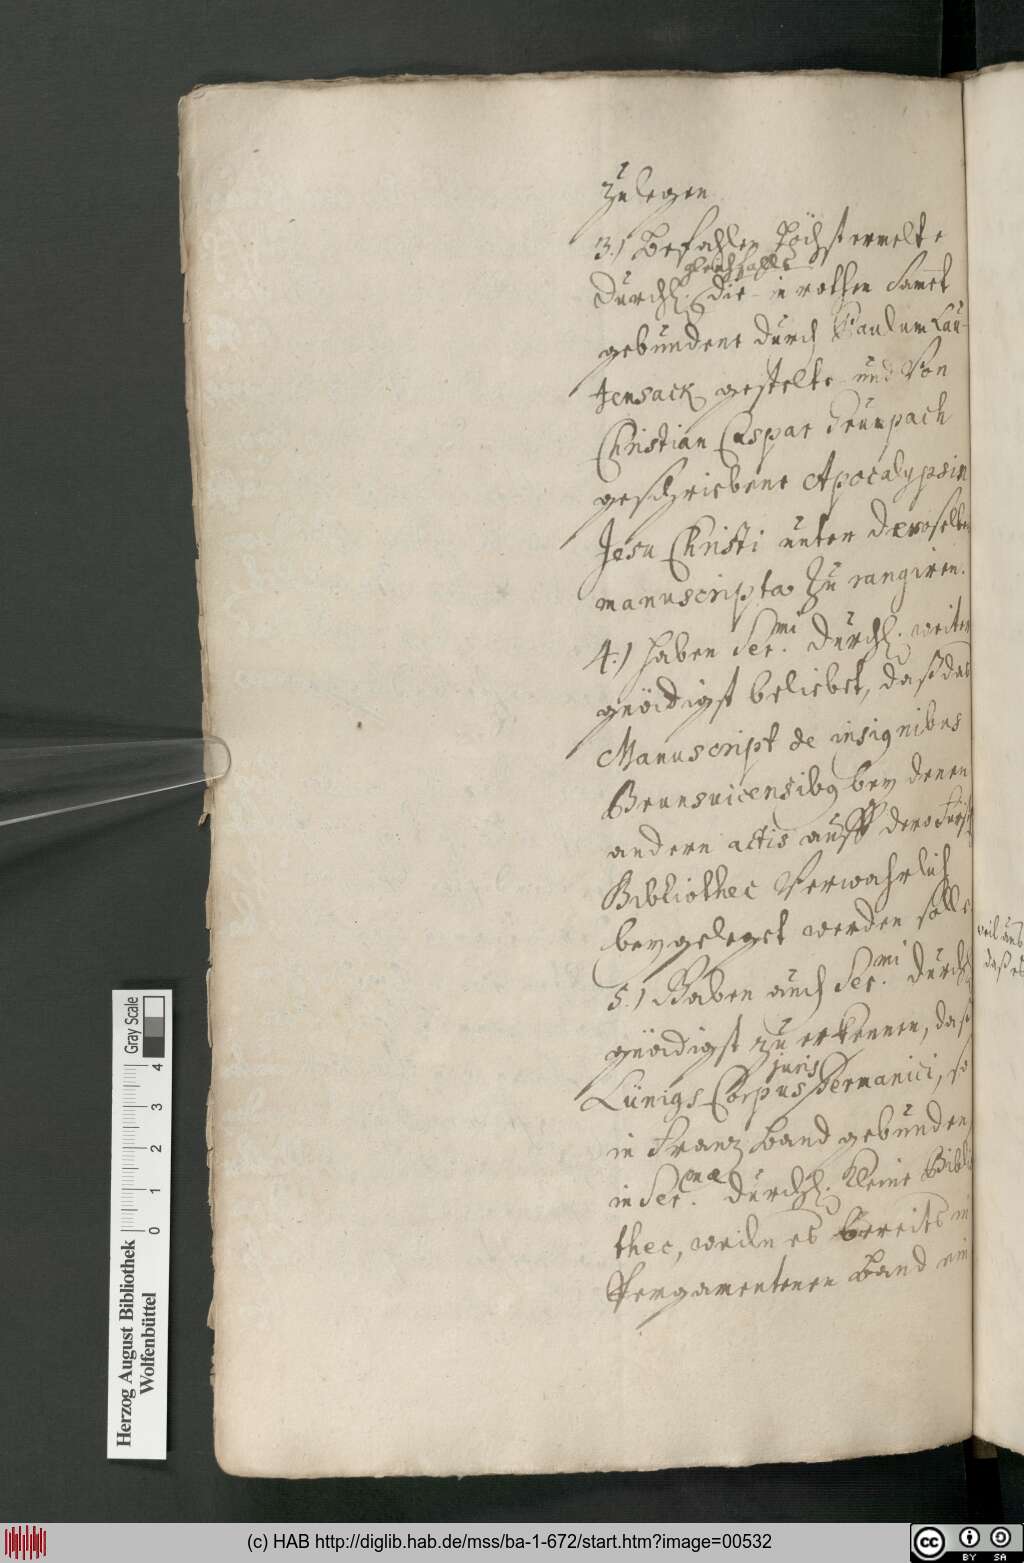 zu legen
3.) Befahlen Höchst ermelte
gleichfalls
Durchl. die in rothen Samet
gebundene durch Paulum Lau-
tensack gestelte und von
Christian Caspar Drumpach
geschriebene Apocalypsin
Jesu Christi unter Deroselben
manuscripta zu rangiren.
4.) haben Ser.mi Durchl. weiter
gnädigst beliebet, daß das
Manuscript de insignibus
Brunsvicensibq bey denen
andern actis auff dero Fürstl
Bibliothec Verwahrlich
beygeleget werden solle
5.) Haben auch Ser.mi Durchl
gnädigst zu erkennen, daß
juris
Lünigs Corpus Germanici, so
in Franz Band gebunden
in Ser.mæ Durchl. kleine Biblio
thec, weiln es bereits in
Pergamentenen Band ein
weil uns
daß es
Herzog August Bibliothek
Wolfenbüttel
0 1 2 3 4
Gray Scale
(c) HAB http://diglib.hab.de/mss/ba-1-672/start.htm?image=00532
cc BY SA